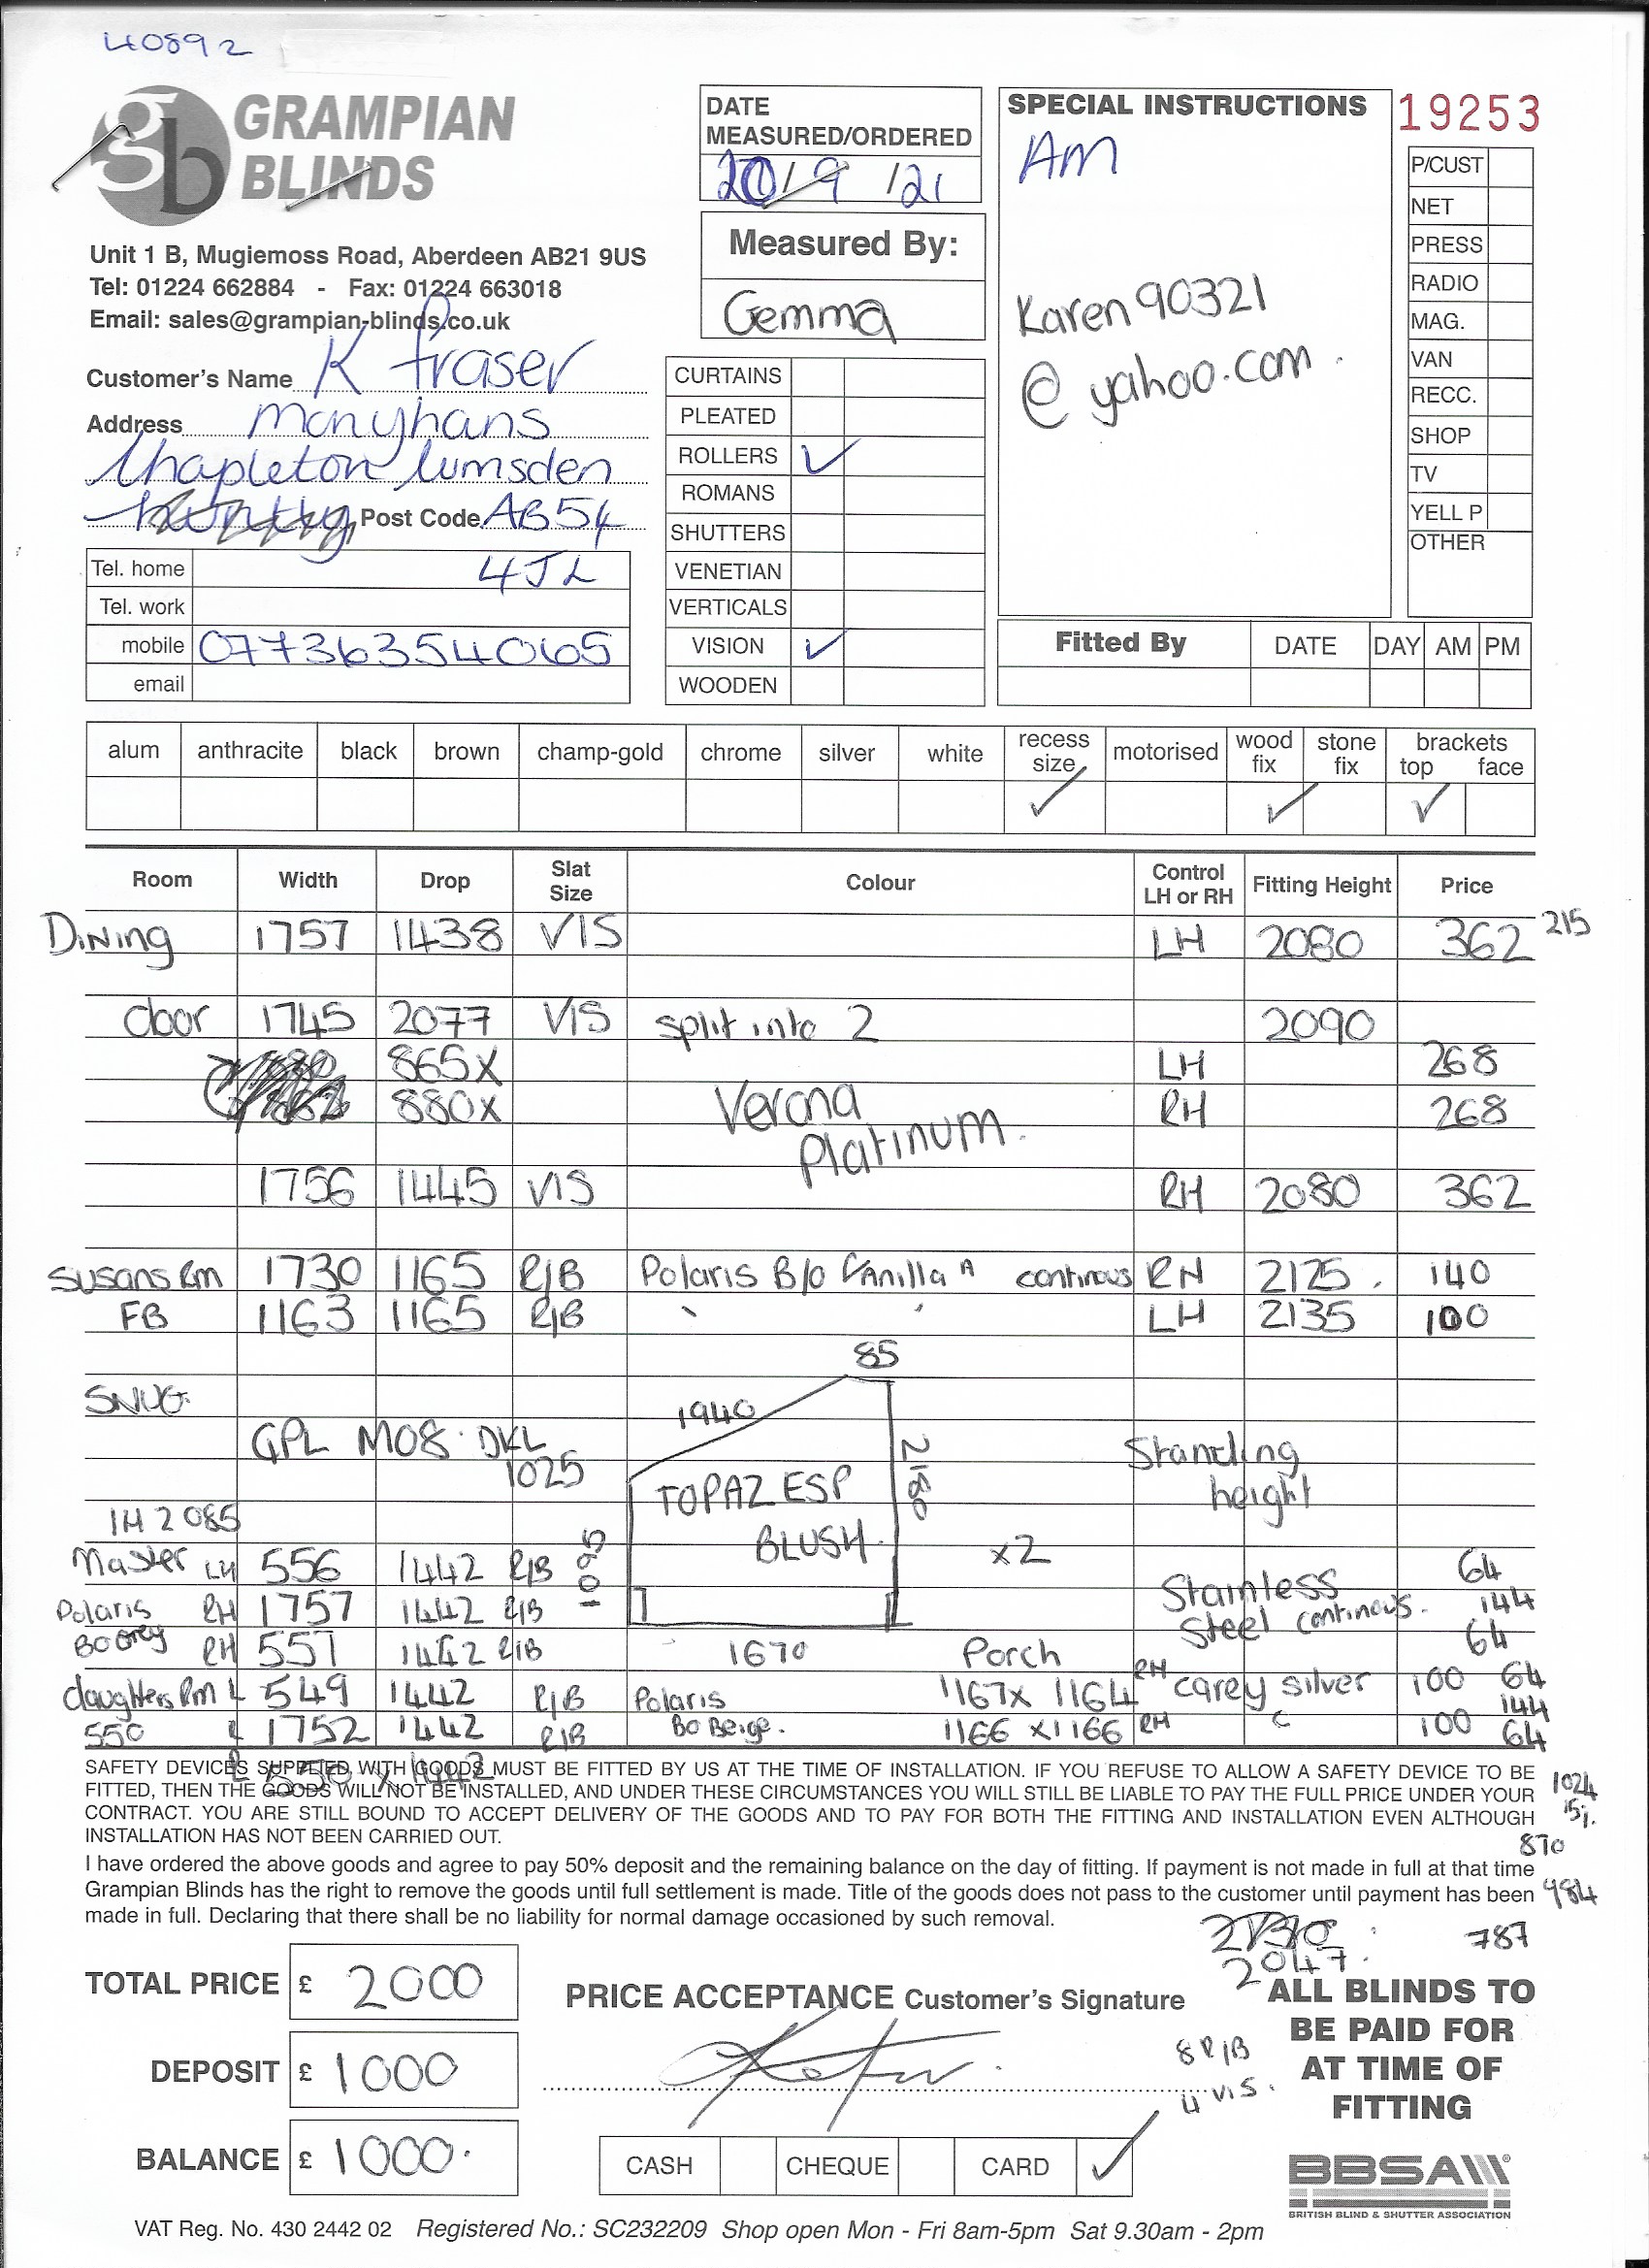 40892
GRAMPIAN
BLINDS
Unit 1 B, Mugiemoss Road, Aberdeen AB21 9US
Tel: 01224 662884 - Fax: 01224 663018
Email: sales@grampian-blinds.co.uk
Customer's Name K fraser
Address Monyhans
Chapleton lumsden
Post Code AB54
4JL
Tel. home
Tel. work
mobile 07736354065
email
DATE
MEASURED/ORDERED
20/9/21
Measured By:
Gemma
CURTAINS
PLEATED
ROLLERS ✓
ROMANS
SHUTTERS
VENETIAN
VERTICALS
VISION ✓
WOODEN
SPECIAL INSTRUCTIONS
AM
Karen90321
@yahoo.com
19253
P/CUST
NET
PRESS
RADIO
MAG.
VAN
RECC.
SHOP
TV
YELL P
OTHER
Fitted By DATE DAY AM PM
alum anthracite black brown champ-gold chrome silver white recess size motorised wood fix stone fix brackets top face
✓ ✓ ✓
Room Width Drop Slat Size Colour Control LH or RH Fitting Height Price
Dining 1757 1438 VIS LH 2080 362 215
door 1745 2077 VIS split into 2 2090
865x LH 268
880x RH 268
Verona
Platinum.
1756 1445 VIS RH 2080 362
Susans Rm 1730 1165 R/B Polaris B/o Vanilla A continous RH 2125. 140
FB 1163 1165 R/B LH 2135 100
85
SNUG.
1940
GPL M08 DKL
1025
2180
Standing
height
TOPAZ ESP
BLUSH.
1H 2085
1095
x2
Master LH 556 1442 R/B 64
Polaris RH 1757 1442 R/B Stainless 144
BO Grey RH 551 1442 R/B Steel continous. 64
1670 Porch
daughters Rm L 549 1442 R/B Polaris 1167x 1164 RH carey silver 100 64
144
550 1752 1442 R/B Bo Beige. 1166 x1166 RH 100 64
550 x 1442
SAFETY DEVICES SUPPLIED WITH GOODS MUST BE FITTED BY US AT THE TIME OF INSTALLATION. IF YOU REFUSE TO ALLOW A SAFETY DEVICE TO BE
FITTED, THEN THE GOODS WILL NOT BE INSTALLED, AND UNDER THESE CIRCUMSTANCES YOU WILL STILL BE LIABLE TO PAY THE FULL PRICE UNDER YOUR
CONTRACT. YOU ARE STILL BOUND TO ACCEPT DELIVERY OF THE GOODS AND TO PAY FOR BOTH THE FITTING AND INSTALLATION EVEN ALTHOUGH
INSTALLATION HAS NOT BEEN CARRIED OUT.
1024
15%.
870
I have ordered the above goods and agree to pay 50% deposit and the remaining balance on the day of fitting. If payment is not made in full at that time
Grampian Blinds has the right to remove the goods until full settlement is made. Title of the goods does not pass to the customer until payment has been
made in full. Declaring that there shall be no liability for normal damage occasioned by such removal.
984
787
2047.
TOTAL PRICE £ 2000
DEPOSIT £ 1000
BALANCE £ 1000.
PRICE ACCEPTANCE Customer's Signature
8 R/B
4 VIS.
CASH CHEQUE CARD ✓
ALL BLINDS TO
BE PAID FOR
AT TIME OF
FITTING
BBSA
BRITISH BLIND & SHUTTER ASSOCIATION
VAT Reg. No. 430 2442 02 Registered No.: SC232209 Shop open Mon - Fri 8am-5pm Sat 9.30am - 2pm